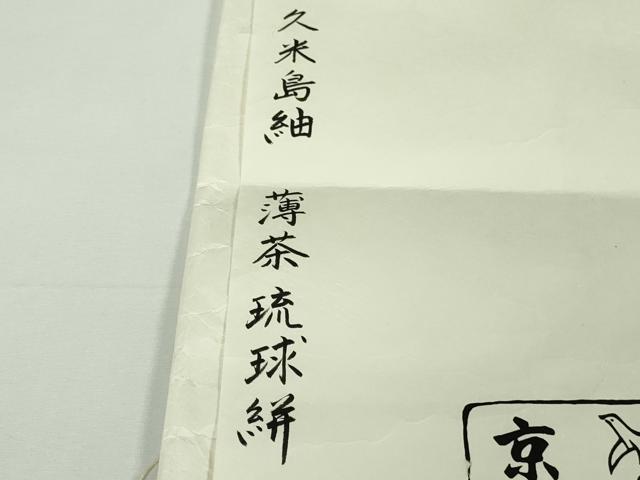 久米島紬 薄茶琉球絣
京